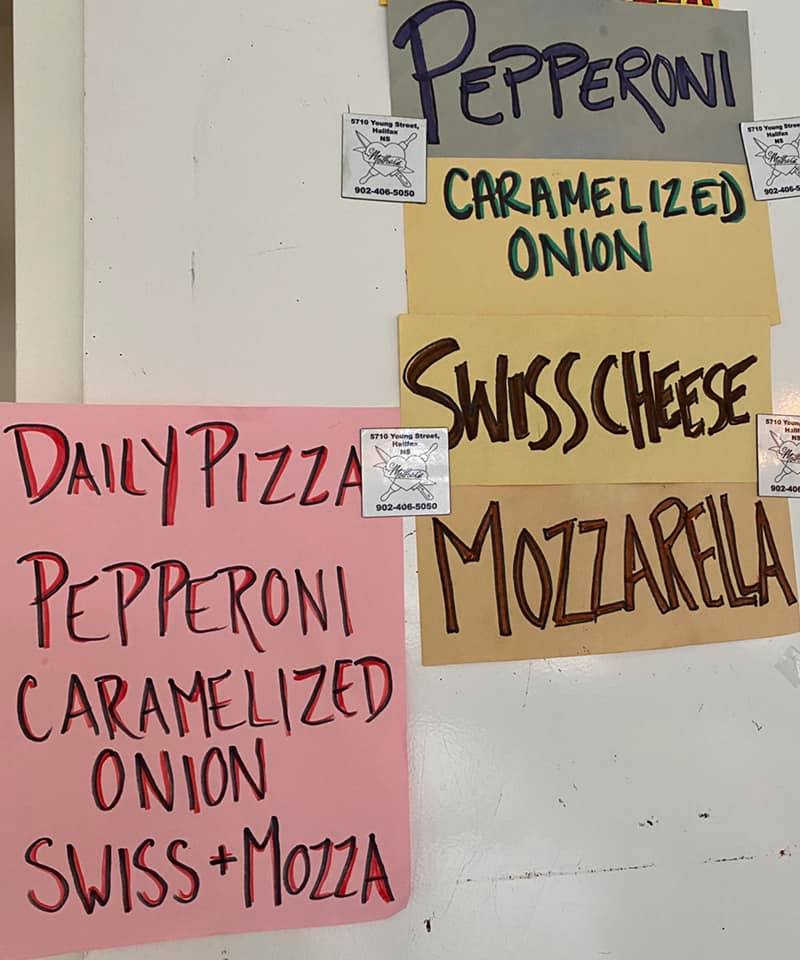 PEPPERONI
CARAMELIZED
ONION
SWISS CHEESE
MOZZARELLA
DAILY PIZZA
PEPPERONI
CARAMELIZED
ONION
SWISS + MOZZA
5710 Young Street,
Halifax
NS
Mother's
902-406-5050
5710 Young
Halifax
NS
902-406-5
5710 Young Street,
Halifax
NS
Mother's
902-406-5050
5710 You
Hali
NS
902-406